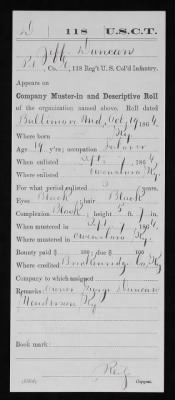 D | 118 | U.S.C.T.
Jeff Duncan
Pvt, Co. , 118 Reg't U. S. Col'd Infantry.
Appears on
Company Muster-in and Descriptive Roll
of the organization named above. Roll dated
Baltimore Md, Oct 19, 1864.
Where born Ky
Age 19 y'rs; occupation Laborer
When enlisted Sept. 7, 1864
Where enlisted Owensboro Ky.
For what period enlisted 3 years.
Eyes Black; hair Black
Complexion Black; height 5 ft. in.
When mustered in Sept. 7, 1864
Where mustered in Owensboro Ky.
Bounty paid $ 100; due $ 100
Where credited Breckenridge Co, Ky
Company to which assigned
Remarks: Owner Duncan
Henderson Ky
Book mark:
Copyist.